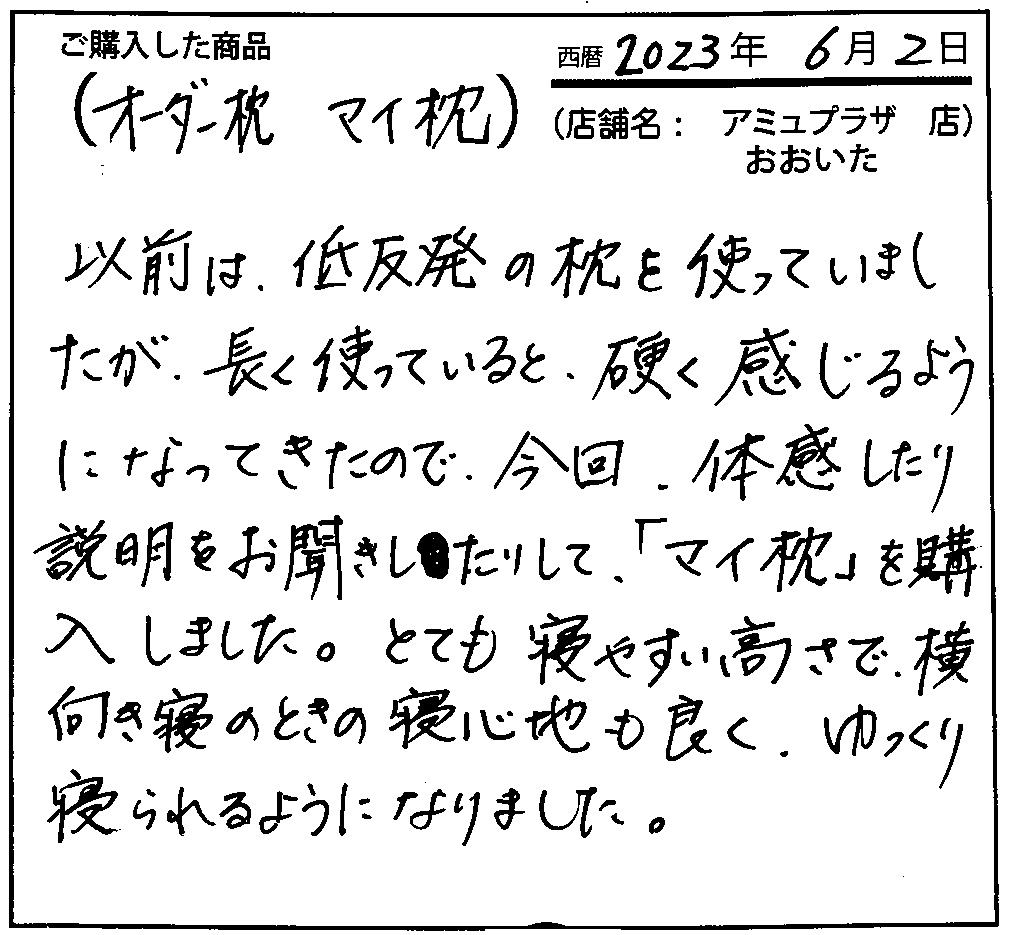 ご購入した商品
西暦 2023年 6月2日
(オーダー枕 マイ枕)
(店舗名： アミュプラザ 店)
おおいた
以前は、低反発の枕を使っていまし
たが、長く使っていると、硬く感じるよう
になってきたので、今回、体感したり
説明をお聞きしたりして、「マイ枕」を購
入しました。とても寝やすい高さで、横
向き寝のときの寝心地も良く、ゆっくり
寝られるようになりました。